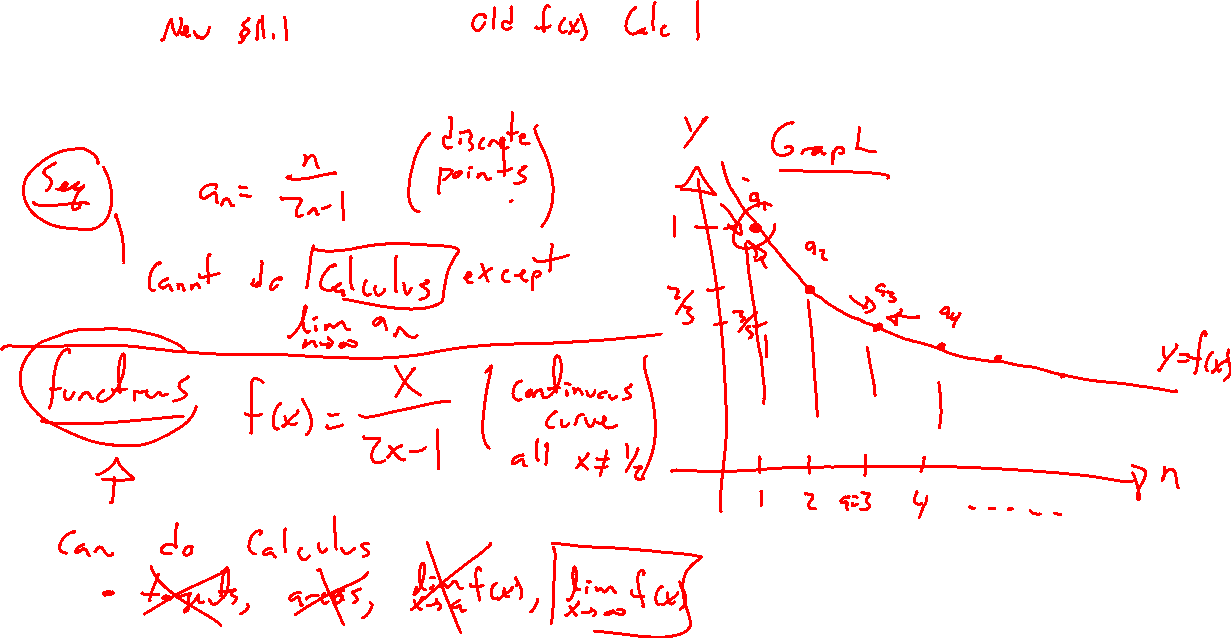 New §11.1
Old f(x) Calc 1
Seq
a_n = n/(2n-1)
(discrete points)
Cannt do Calculus except
lim n→∞ a_n
functions
f(x) = x/(2x-1)
(continuous
curve
all x ≠ 1/2)
Can do Calculus
• tangents, areas, lim x→a f(x), lim x→∞ f(x)
Graph
y
1
2/3
3/5
a_1
a_2
a_3
a_4
y=f(x)
n
1 2 3 4 ......